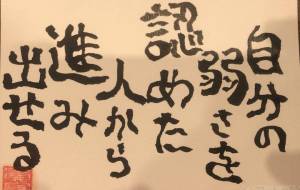 自分の
弱さを
認めた
人から
進み
出せる